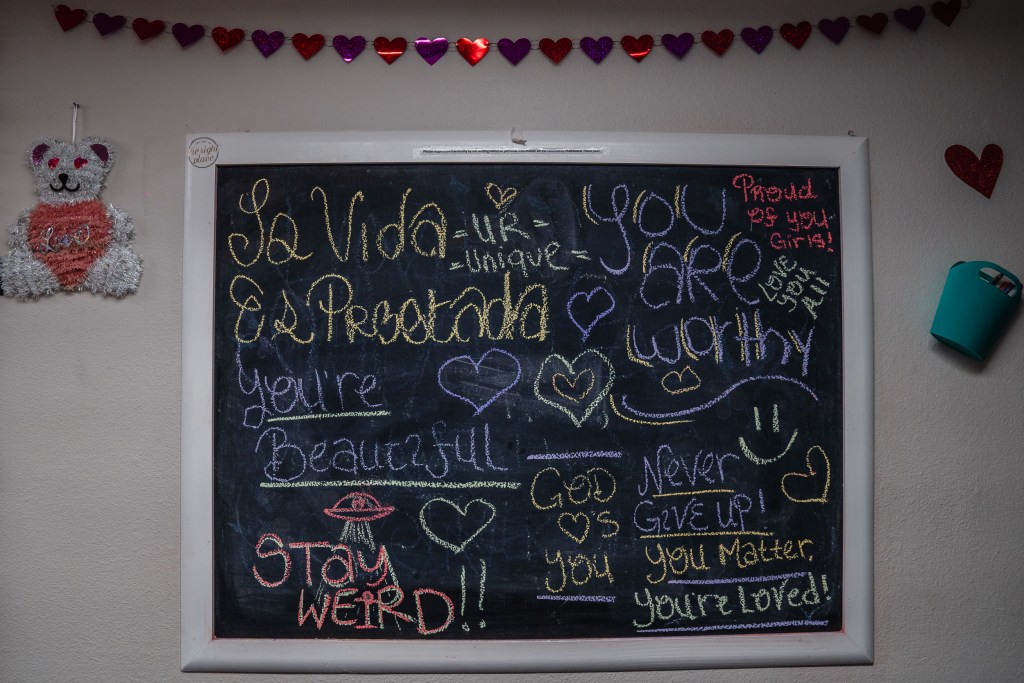 La Vida
Es Prestada
= UR =
= unique =
You
Are
worthy
Proud
of you
Girls!
Love
you
All
You're
Beautiful
God
♡'s
you
Never
Give up!
You Matter,
You're Loved!
Stay
Weird!!
Love